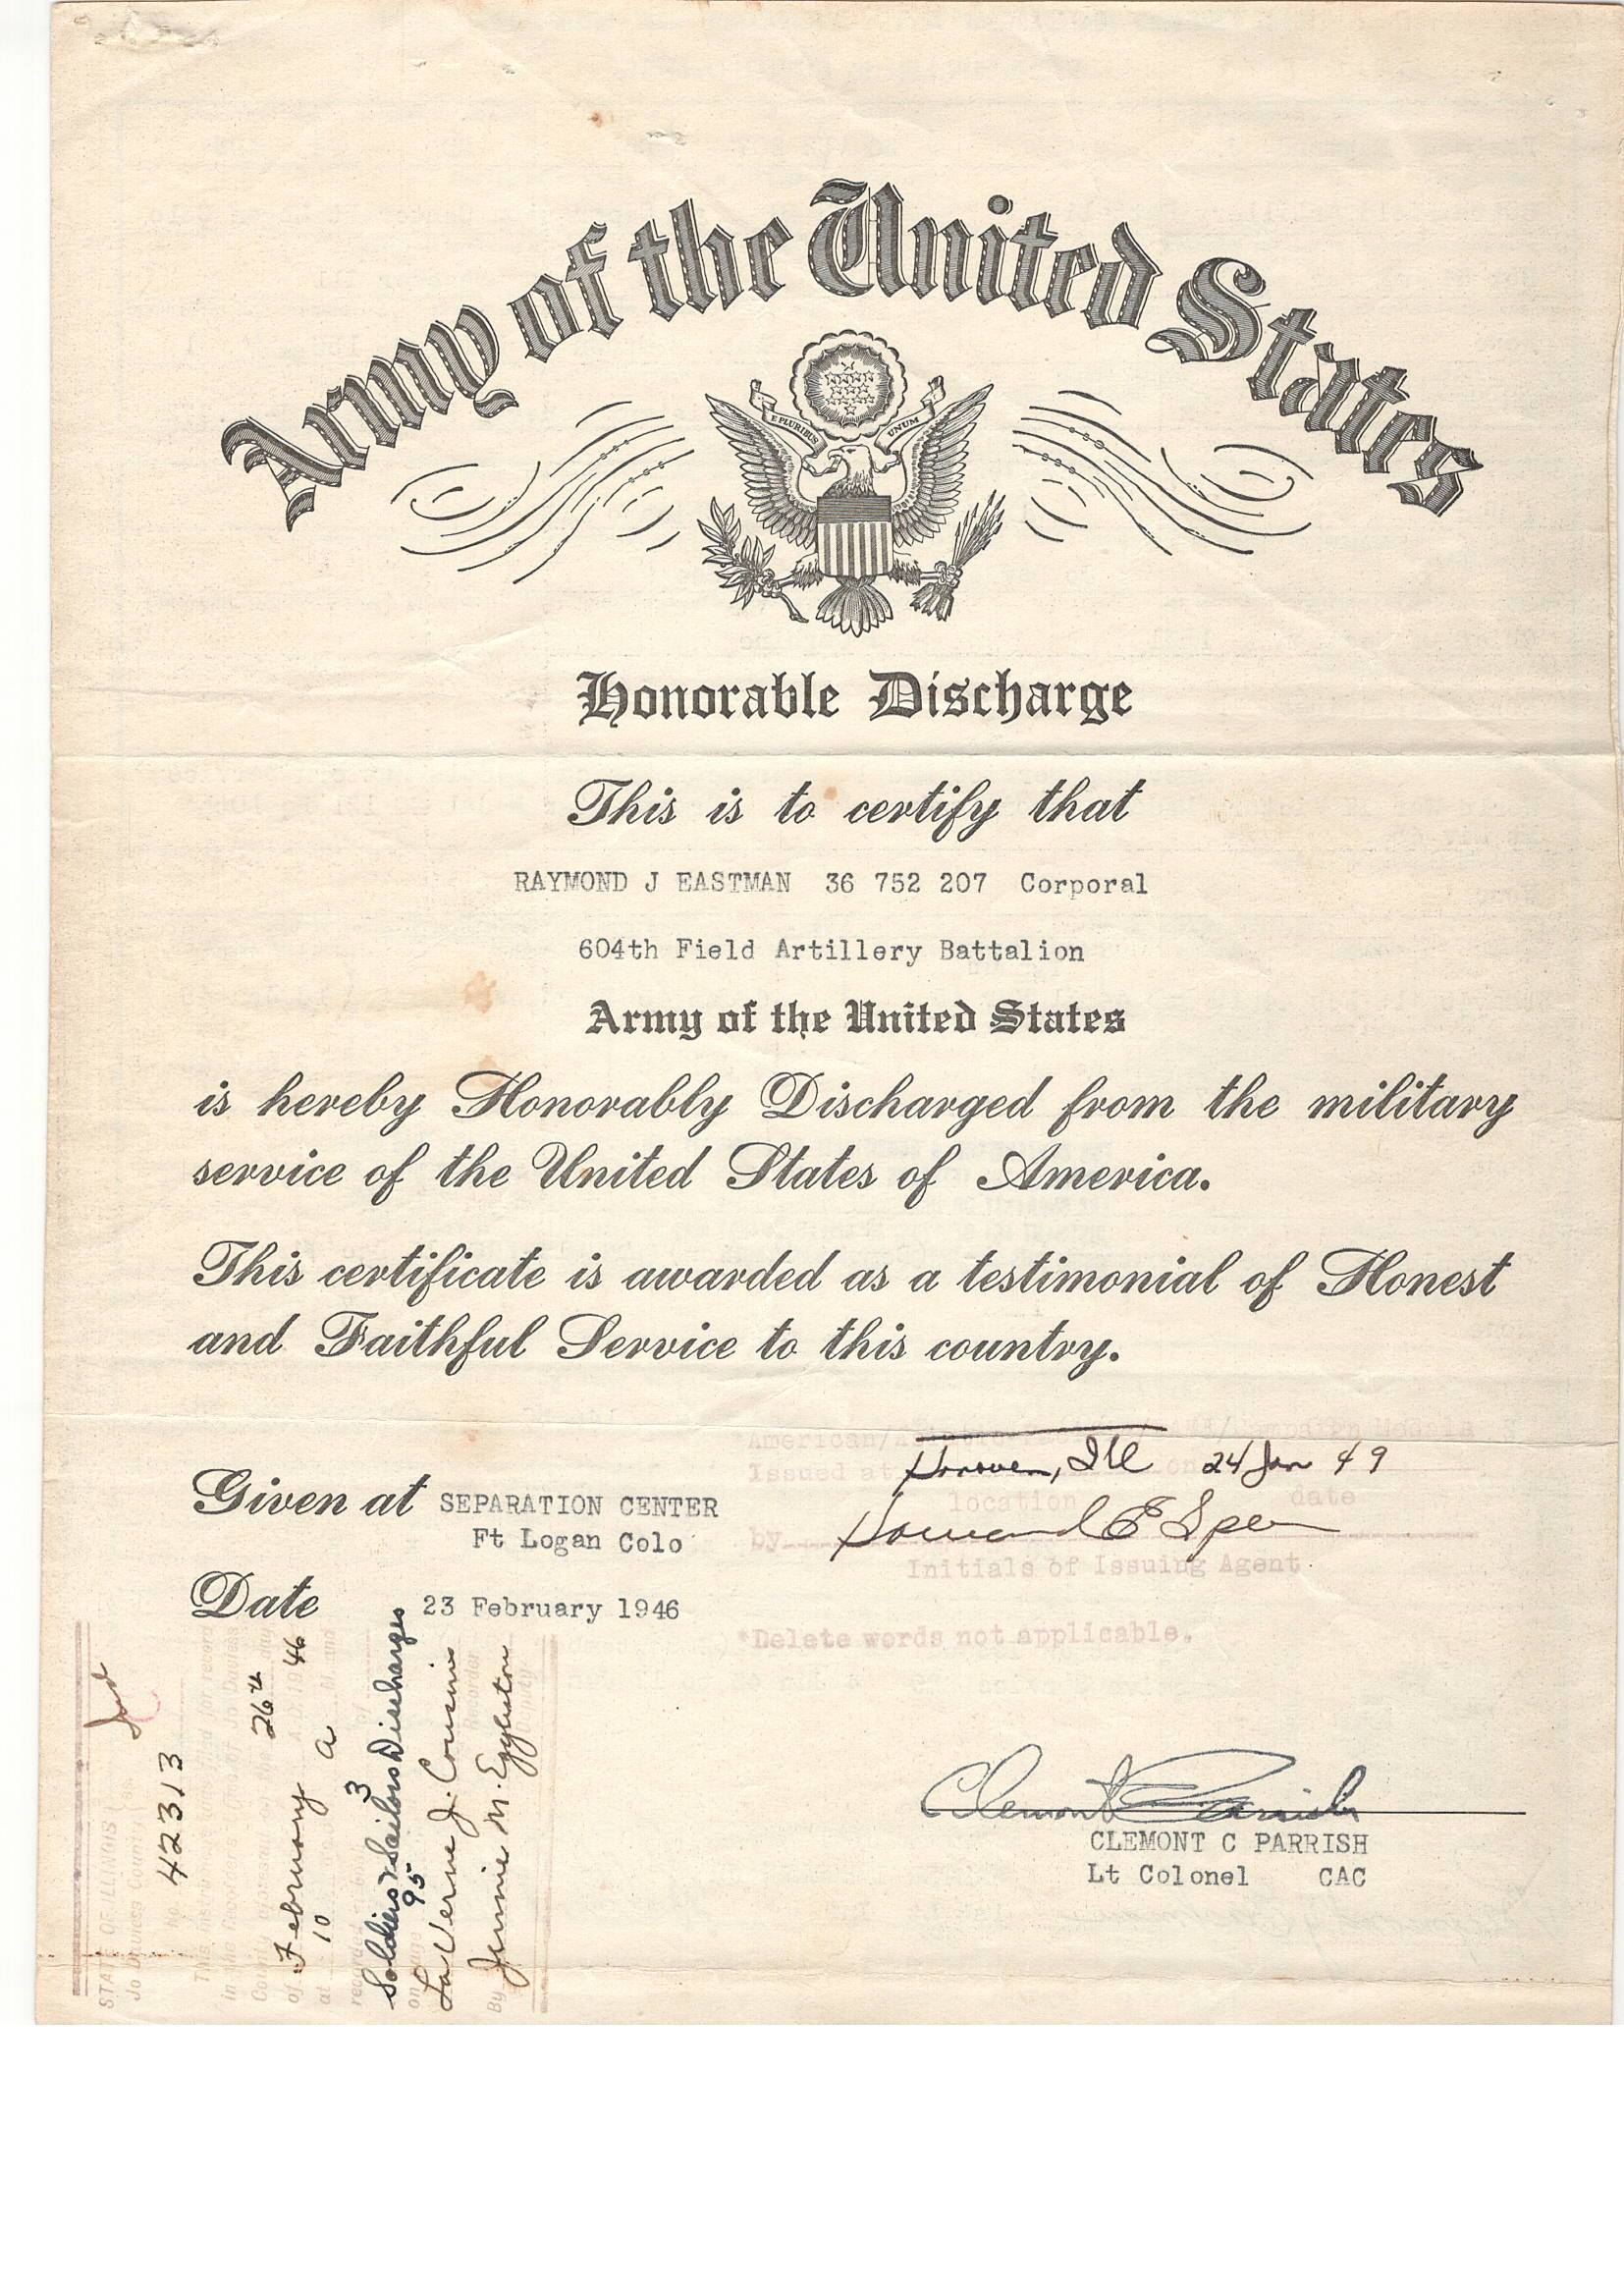 Army of the United States
E PLURIBUS UNUM
Honorable Discharge
This is to certify that
RAYMOND J EASTMAN 36 752 207 Corporal
604th Field Artillery Battalion
Army of the United States
is hereby Honorably Discharged from the military
service of the United States of America.
This certificate is awarded as a testimonial of Honest
and Faithful Service to this country.
Given at SEPARATION CENTER
Ft Logan Colo
Date 23 February 1946
American/
Issued at Hanover, Ill 24 Jan 49
location date
by Howard E
Initials of Issuing Agent
*Delete words not applicable.
Clemont C Parrish
CLEMONT C PARRISH
Lt Colonel CAC
STATE OF ILLINOIS
Jo Daviess County
42313
This filed for record
in the Jo Daviess
26th
of February A.D. 1946
at 10 A M. and
3
Soldiers & Sailors Discharges
on 95
LaVerne J. Cousin
Recorder
By Jennie M. Eggleston